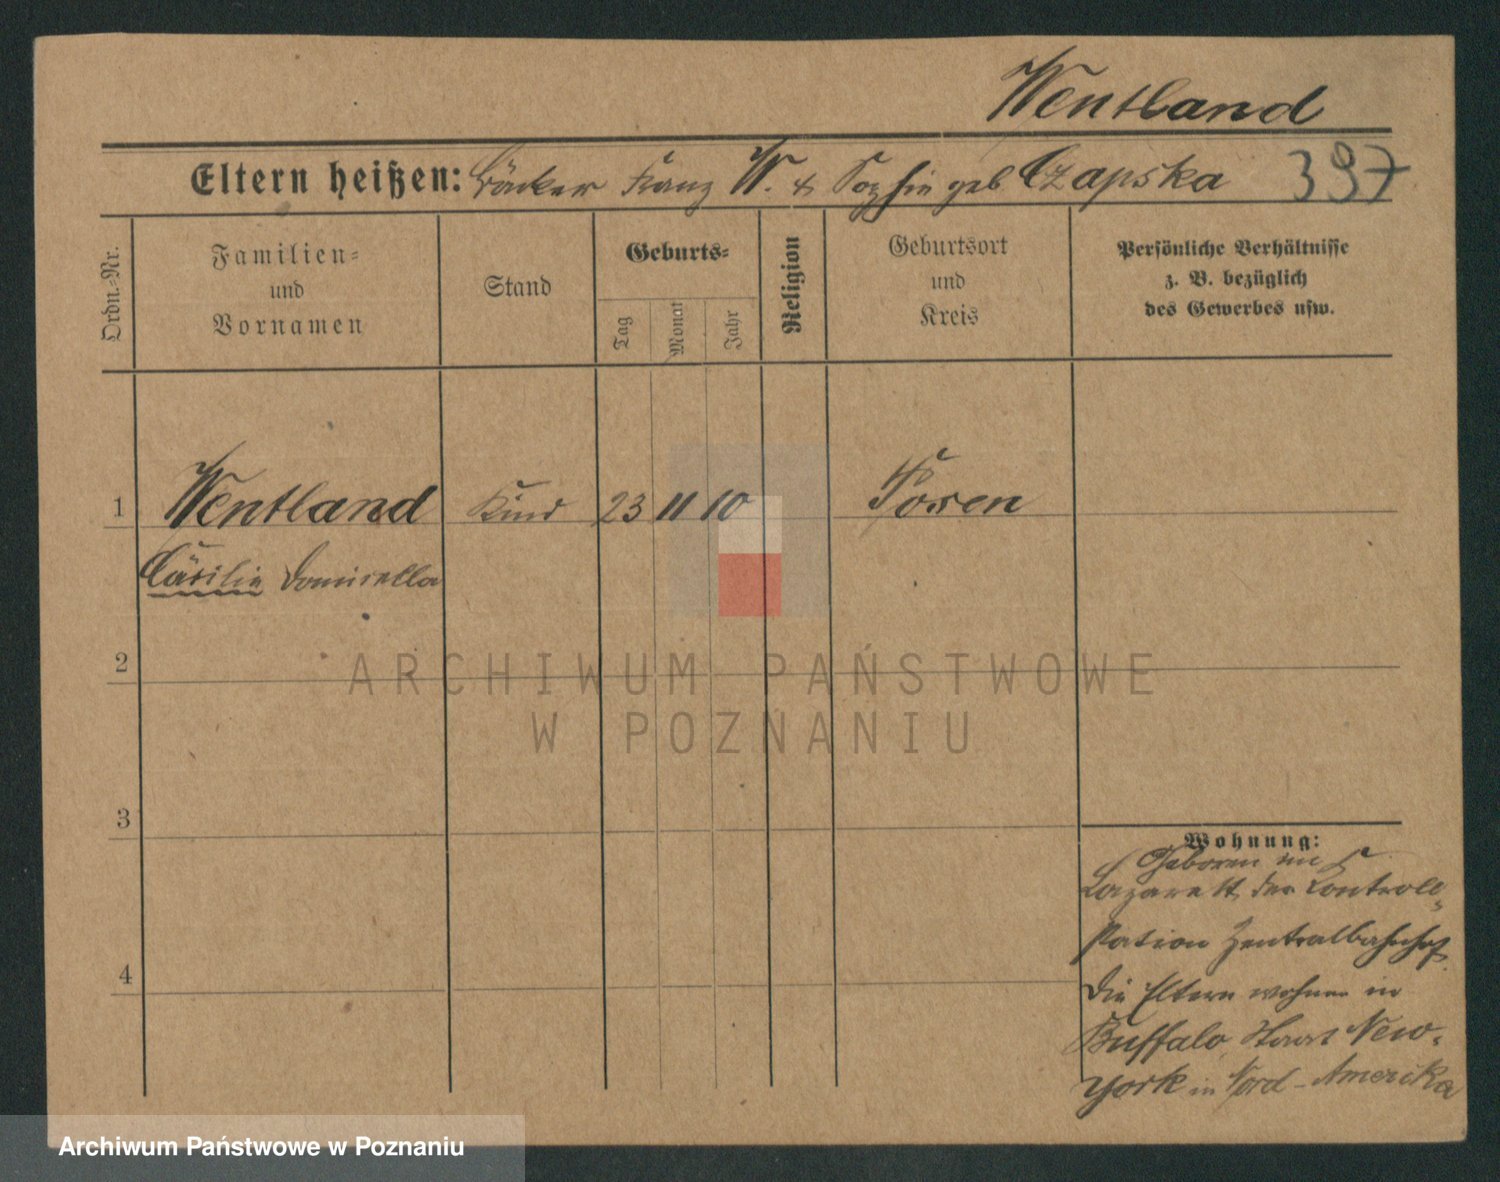 Wentland
Eltern heißen: Bäcker Franz W. & Sophie geb Czapska 397
Ordn.-Nr.
Familien-
und
Vornamen
Stand
Geburts-
Tag
Monat
Jahr
Religion
Geburtsort
und
Kreis
Persönliche Verhältnisse
z. B. bezüglich
des Gewerbes usw.
1 Wentland Kind 23 11 10 Posen
Cäcilie Domicella
2
ARCHIWUM PAŃSTWOWE
W POZNANIU
3
Wohnung:
Geboren im
Lazarett der Controll-
station Zentralbahnhof.
4
Die Eltern wohnen in
Buffalo, Staat New-
York in Nord-Amerika
Archiwum Państwowe w Poznaniu